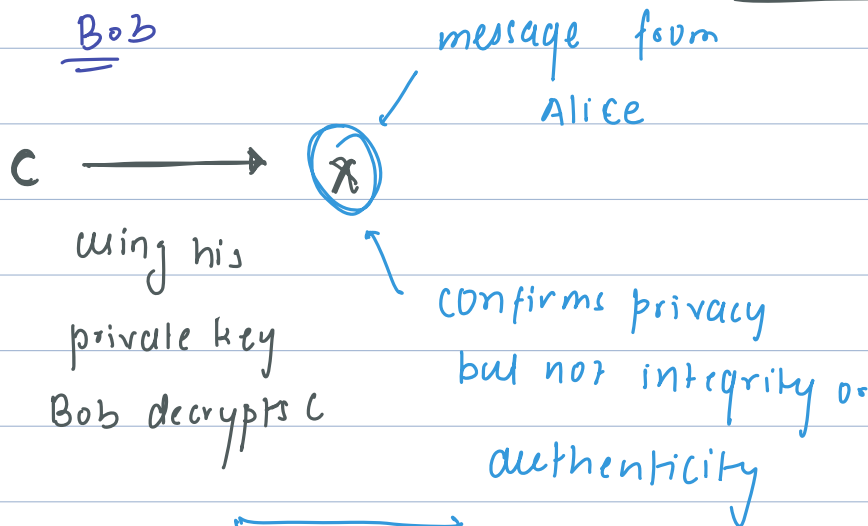 Bob
message from
Alice
C x
using his
private key
Bob decrypts C
confirms privacy
but not integrity or
authenticity